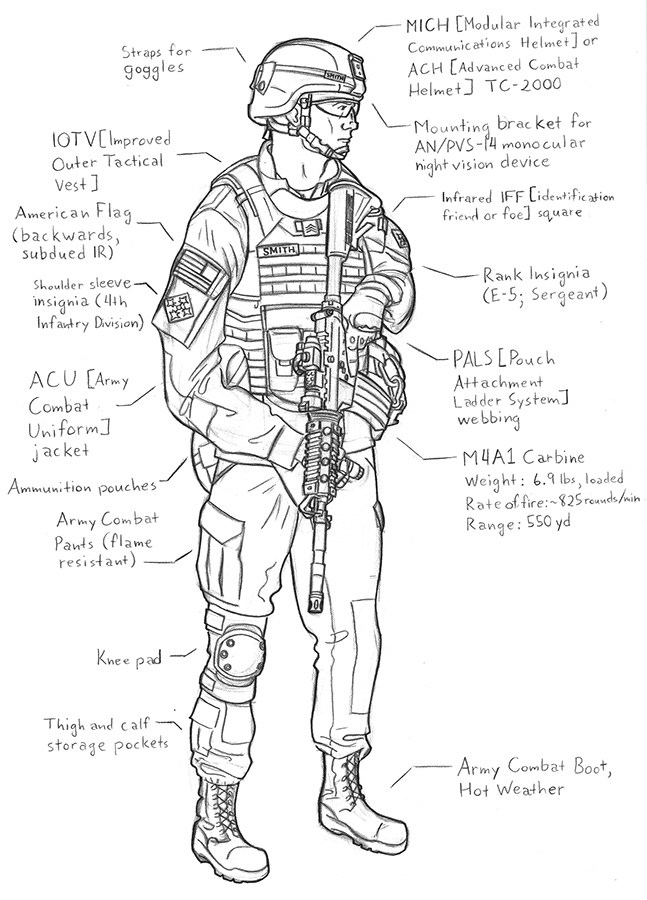 MICH [Modular Integrated
Communications Helmet] or
ACH [Advanced Combat
Helmet] TC-2000
Straps for
goggles
SMITH
Mounting bracket for
AN/PVS-14 monocular
night vision device
IOTV[Improved
Outer Tactical
Vest]
Infrared IFF [identification
friend or foe] square
American Flag
(backwards,
subdued IR)
SMITH
Rank Insignia
(E-5; Sergeant)
Shoulder sleeve
insignia (4th
Infantry Division)
PALS [Pouch
Attachment
Ladder System]
webbing
ACU [Army
Combat
Uniform]
jacket
M4A1 Carbine
Weight: 6.9 lbs, loaded
Rate of fire:~825 rounds/min
Range: 550 yd
Ammunition pouches
Army Combat
Pants (flame
resistant)
Knee pad
Thigh and calf
storage pockets
Army Combat Boot,
Hot Weather